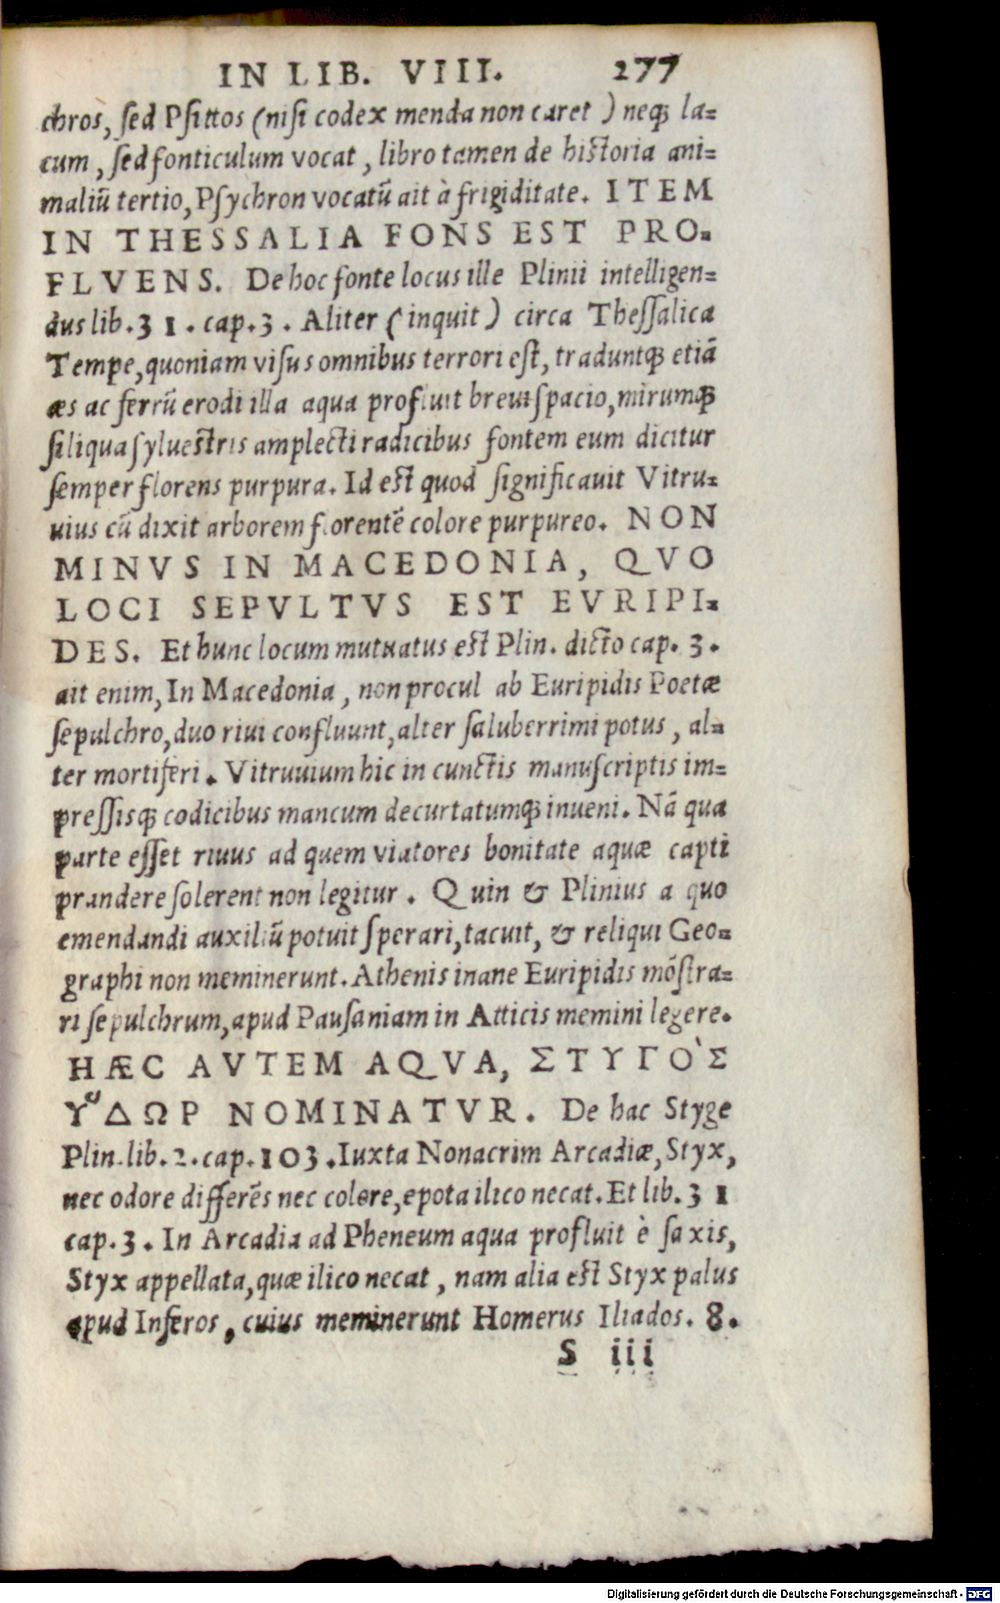 IN LIB. VIII. 277
chros, sed Psittos (nisi codex menda non caret) neq; la=
cum, sed fonticulum vocat, libro tamen de historia ani=
maliũ tertio, Psychron vocatũ ait à frigiditate. ITEM
IN THESSALIA FONS EST PRO=
FLVENS. De hoc fonte locus ille Plinii intelligen=
dus lib. 31. cap. 3. Aliter (inquit) circa Thessalica
Tempe, quoniam visus omnibus terrori est, traduntq; etiã
æs ac ferrũ erodi illa aqua profluit brevi spacio, mirumq;
siliqua syluestris amplecti radicibus fontem eum dicitur
semper florens purpura. Id est quod significauit Vitru=
uius cũ dixit arborem florentẽ colore purpureo. NON
MINVS IN MACEDONIA, QVO
LOCI SEPVLTVS EST EVRIPI=
DES. Et hunc locum mutuatus est Plin. dicto cap. 3.
ait enim, In Macedonia, non procul ab Euripidis Poetæ
sepulchro, duo riui confluunt, alter saluberrimi potus, al=
ter mortiferi. Vitruuium hic in cunctis manuscriptis im=
pressisq; codicibus mancum decurtatumq; inueni. Nã qua
parte esset riuus ad quem viatores bonitate aquæ capti
prandere solerent non legitur. Quin & Plinius a quo
emendandi auxiliũ potuit sperari, tacuit, & reliqui Geo=
graphi non meminerunt. Athenis inane Euripidis mõstra=
ri sepulchrum, apud Pausaniam in Atticis memini legere.
HÆC AVTEM AQVA, ΣΤΥΓῸΣ
Υ῞ΔΩΡ NOMINATVR. De hac Styge
Plin. lib. 2. cap. 103. Iuxta Nonacrim Arcadiæ, Styx,
nec odore differẽs nec colore, epota ilico necat. Et lib. 31
cap. 3. In Arcadia ad Pheneum aqua profluit è saxis,
Styx appellata, quæ ilico necat, nam alia est Styx palus
apud Inferos, cuius meminerunt Homerus Iliados. 8.
S iii
Digitalisierung gefördert durch die Deutsche Forschungsgemeinschaft - DFG